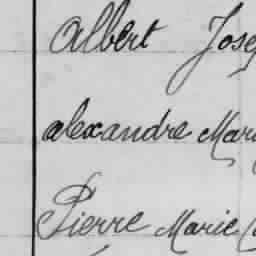 Albert Jose
alexandre Mari
Pierre Marie